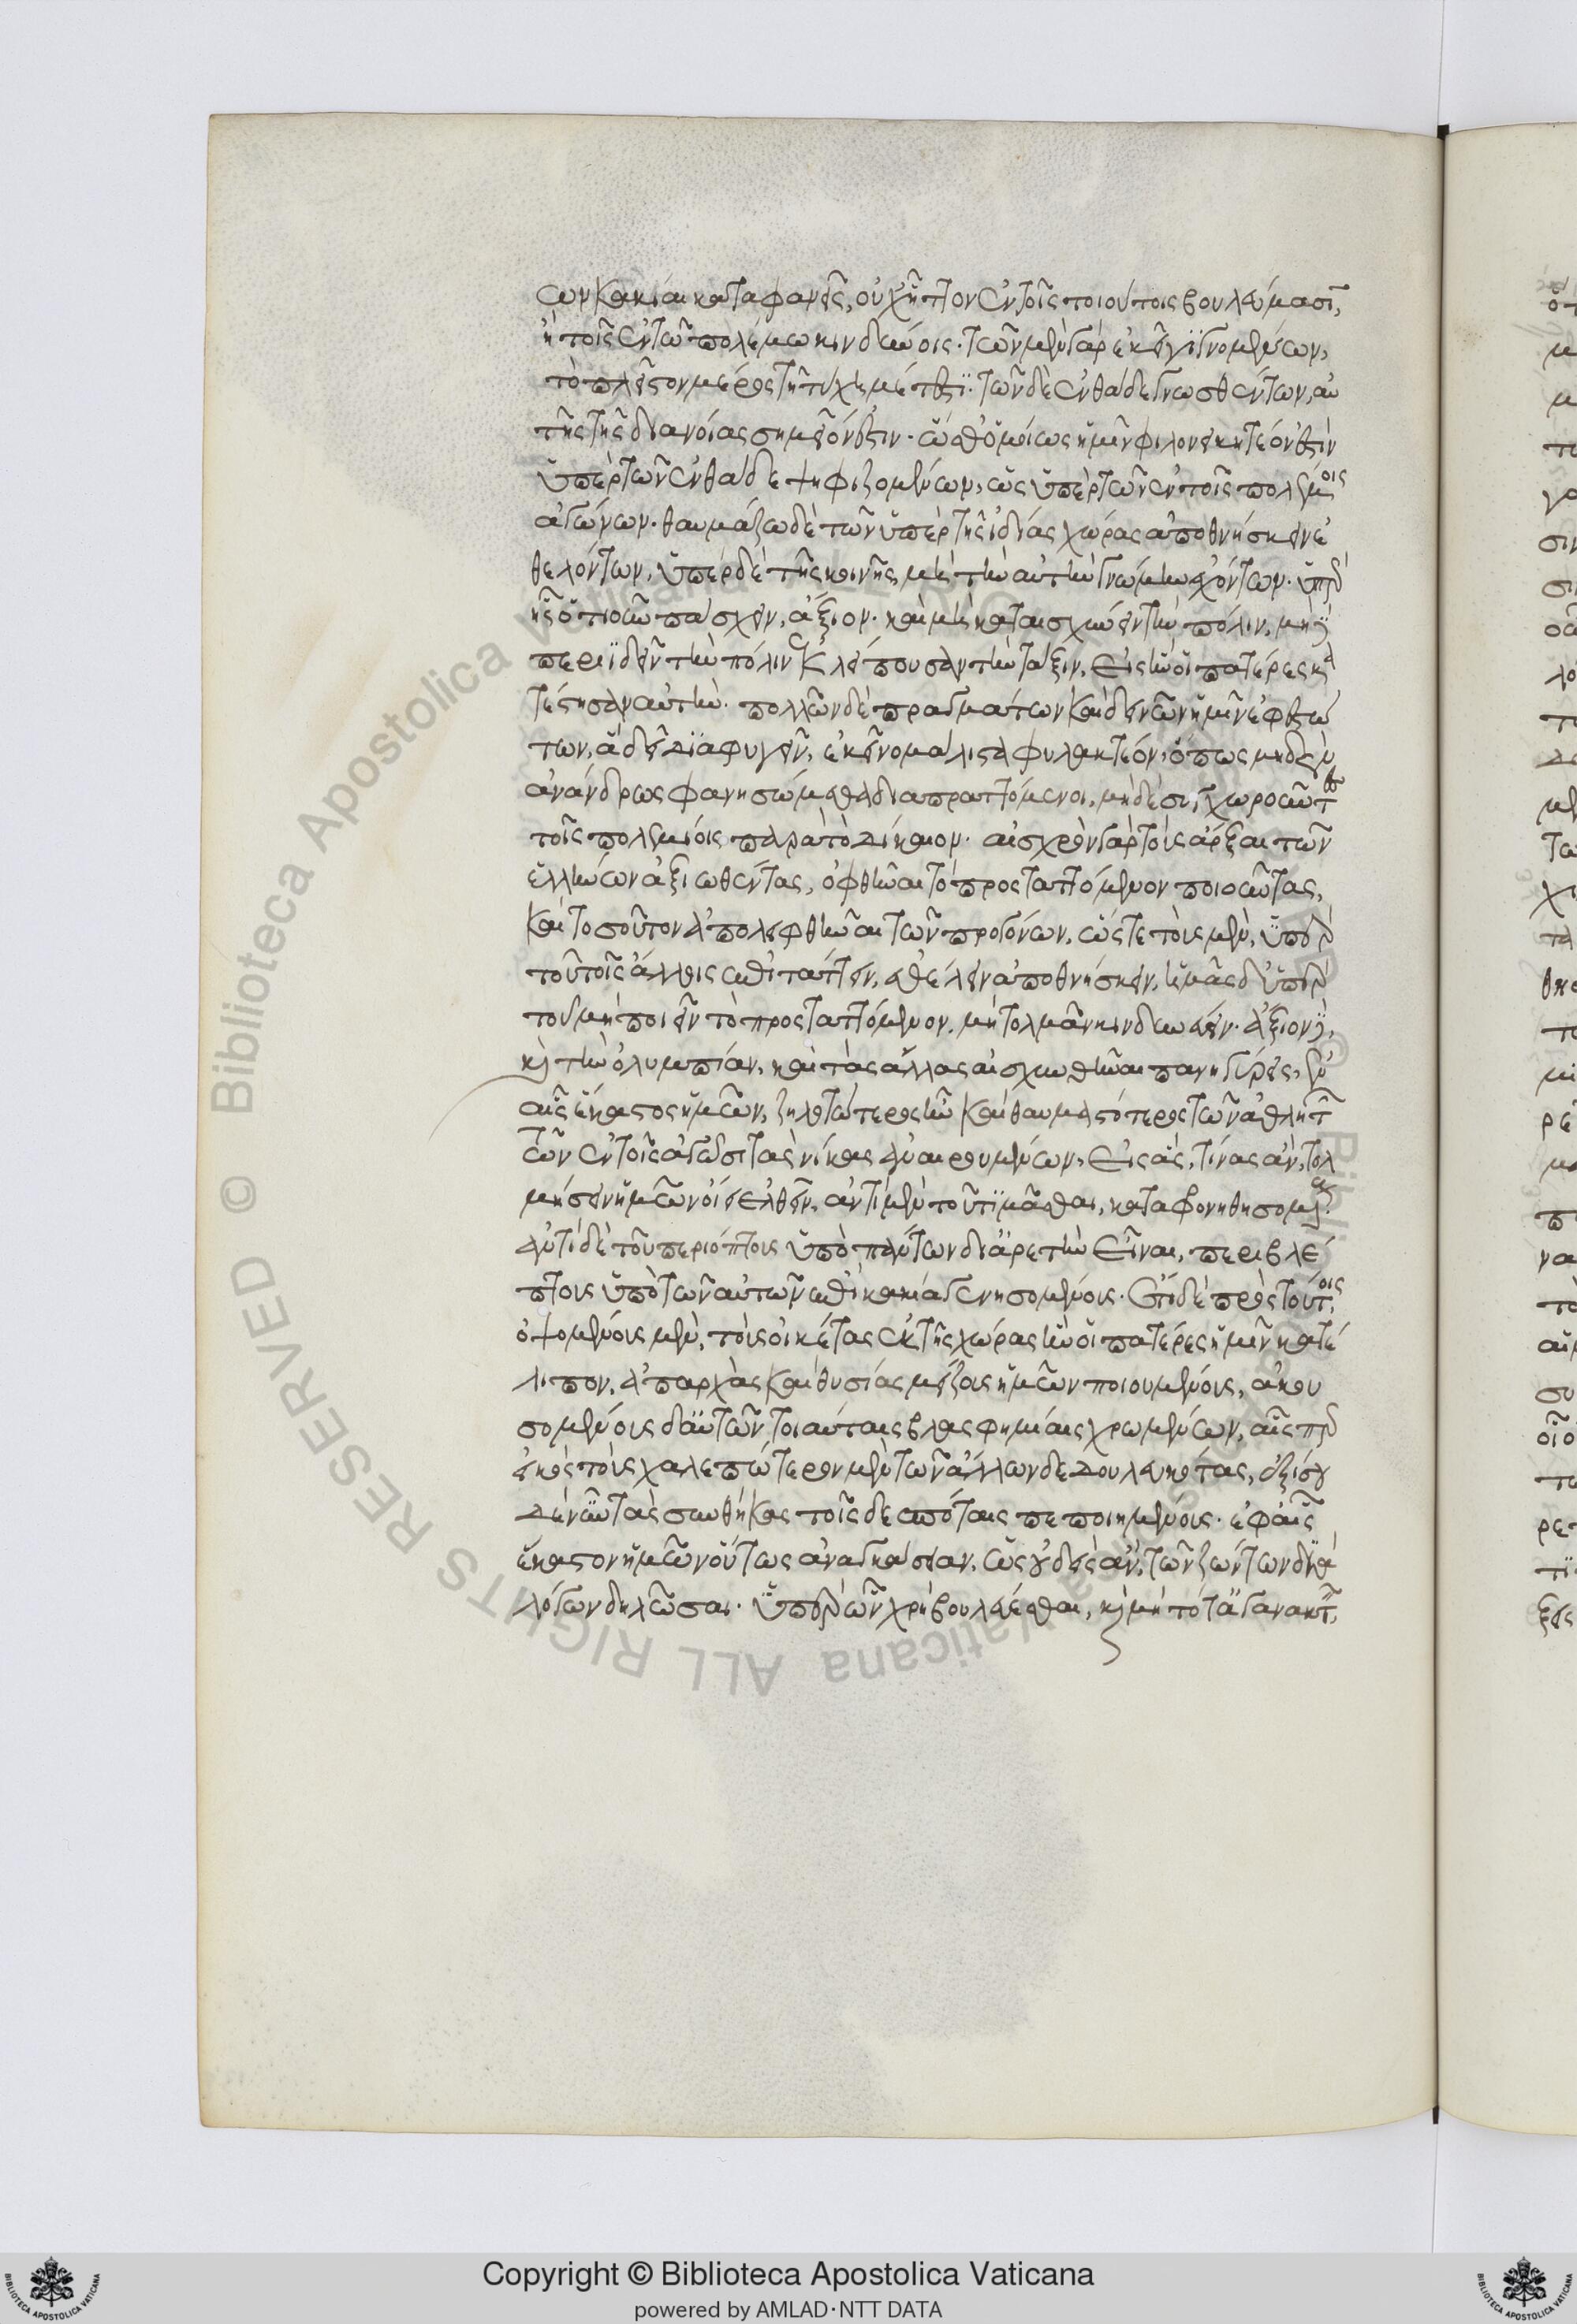 σων κακίαι καταφανεῖς, οὐχ ἧττον ἐν τοῖς τοιούτοις βουλεύμασι,
ἢ τοῖς ἐν τῶ πολέμω κινδύνοις. τῶν μὲν γὰρ ἐκεῖ γϊγνομένων,
τὸ πλεῖστον μέρος τῆ τύχη μέτεστϊ. τῶν δὲ ἐνθάδε γνωσθέντων, αὐ
τῆς τῆς διανοίας σημεῖόν ἐστιν. ὥσθ' ὁμοίως ἡμῖν φιλονεικητέον ἐστὶν
ὑπὲρ τῶν ἐνθάδε ψηφιζομένων, ὡς ὑπὲρ τῶν ἐν τοῖς πολέμοις
ἀγώνων. θαυμάζω δὲ τῶν ὑπὲρ τῆς ἰδίας χώρας ἀποθνήσκειν ἐ
θελόντων, ὑπὲρ δὲ τῆς κοινῆς, μὴ τὴν αὐτὴν γνώμην ἐχόντων. ὑπὲρ
ἧς ὁτιοῦν πάσχειν, ἄξιον. καὶ μὴ καταισχύνειν τὴν πόλιν, μὴ δὲ
περιϊδεῖν τὴν πόλιν ἐκλείπουσαν τὴν τάξιν, εἰς ἣν οἱ πατέρες κα
τέστησαν αὐτήν. πολλῶν δὲ πραγμάτων καὶ δεινῶν ἡμῖν ἐφεστώ
των, ἃ δεῖ δϊαφυγεῖν, ἐκεῖνο μάλιστα φυλακτέον, ὅπως μηδὲν
ἀνάνδρως φανησώμεθα διαπραττόμενοι, μηδὲ συγχωροῦντες
τοῖς πολεμίοις παρὰ τὸ δίκαιον. αἰσχρὸν γὰρ τοὺς ἄρξαι τῶν
ἑλλήνων ἀξιωθέντας, ὀφθῆναι τὸ προσταττόμενον ποιοῦντας,
καὶ τοσοῦτον ἀπολειφθῆναι τῶν προγόνων, ὥστε τοὺς μὲν, ὑπὲρ
τοῦ τοῖς ἄλλοις ἐπιτάττειν, ἐθέλειν ἀποθνήσκειν, ἡμᾶς δ' ὑπὲρ
τοῦ μὴ ποιεῖν τὸ προσταττόμενον, μὴ τολμᾶν κινδυνεύειν. ἄξιον δὲ,
καὶ τὴν ὀλυμπίαν, καὶ τὰς ἄλλας αἰσχυνθῆναι πανηγύρεις, ἐν
αἷς ἕκαστος ἡμῶν, ζηλωτώτερος ἦν καὶ θαυμαστότερος τῶν ἀθλητῶν
τῶν ἐν τοῖς ἀγῶσι τὰς νίκας ἀναιρουμένων, εἰς ἃς, τίνας ἂν, τολ
μήσειν ἡμῶν οἴει ἐλθεῖν, ἀντὶ μὲν τοῦ τϊμᾶσθαι, καταφρονηθησομένους
ἀντὶ δὲ τοῦ περιόπτους ὑπὸ πάντων δι' ἀρετὴν εἶναι, περιβλέ
πτους ὑπὸ τῶν αὐτῶν ἐπὶ κακία γενησομένους. ἔτι δὲ πρὸς τούτοις
ὀψομένους μὲν, τοὺς οἰκέτας ἐκ τῆς χώρας ἣν οἱ πατέρες ἡμῖν κατέ
λιπον, ἀπαρχὰς καὶ θυσίας μείζους ἡμῶν ποιουμένους, ἀκου
σομένους δ' αὐτῶν τοιαύταις βλασφημίαις χρωμένων, αἷς περ
εἰκὸς τοὺς χαλεπώτερον μὲν τῶν ἄλλων δεδουλευκότας, ἐξ ἴσου
δὲ νῦν τὰς συνθήκας τοῖς δεσπόταις πεποιημένους. ἐφ' αἷς
ἕκαστον ἡμῶν οὕτως ἀναγκάσειαν, ὡς οὐδεὶς ἂν, τῶν ζώντων διὰ
λόγων δηλῶσαι. ὑπὲρ ὧν χρὴ βουλεύεσθαι, καὶ μὴ τότ' ἀγανακτεῖν,